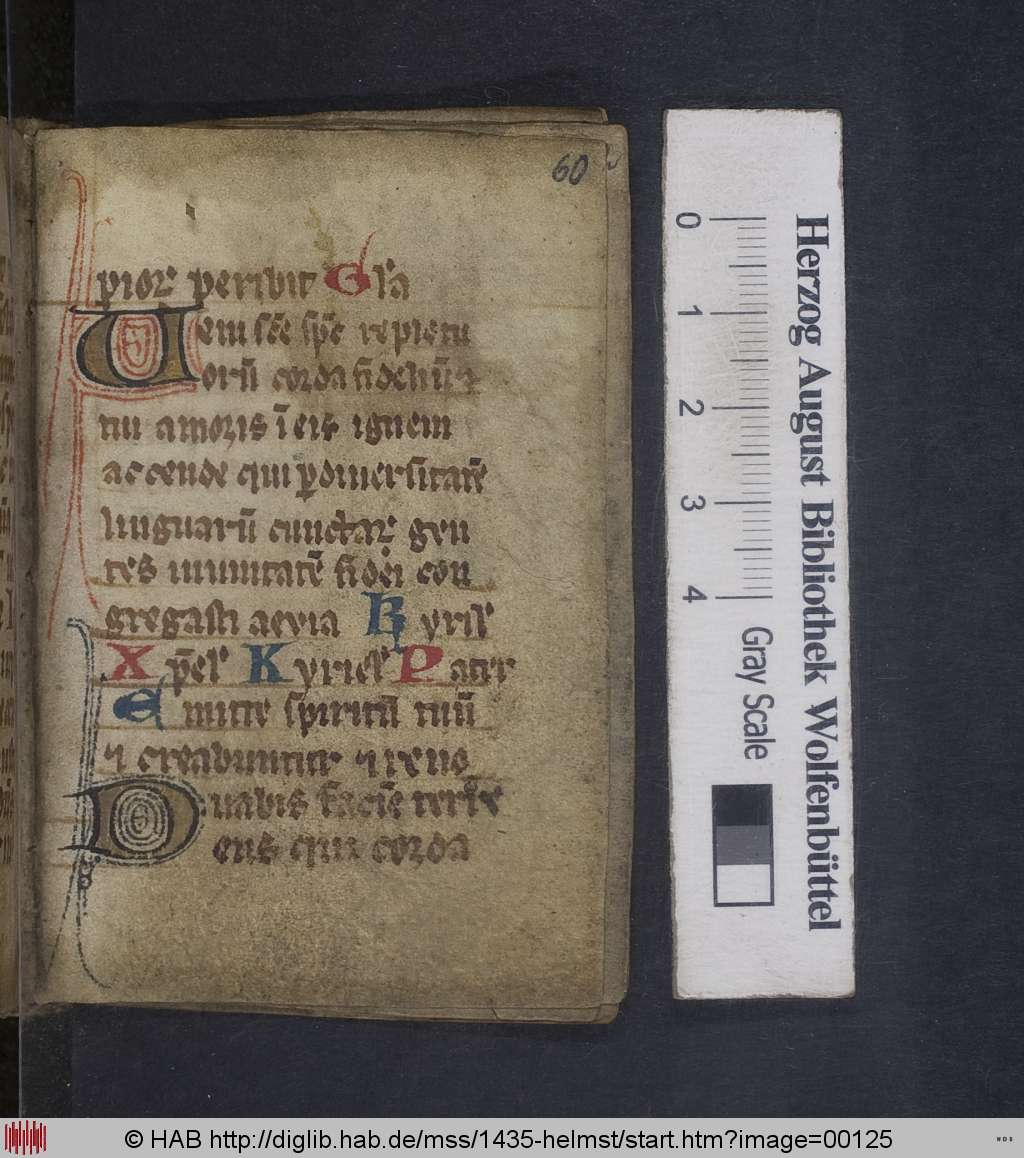 60
pior᷑ peribit Gl'a
Ueni sc̄e sp̄c repletu
orū corda fideliū ⁊
tui amoris ī eis ignem
accende qui ꝑ diuersitatē
linguarū cunctar᷑ gen
tes in unitatē fidei con
gregasti aeuia Kyriel'
Xp̄el' Kyriel' Pater
Emitte spiritū tuū
⁊ creabuntur ⁊ reno
uabis faciē terre
Deus qui corda
Herzog August Bibliothek Wolfenbüttel
0 1 2 3 4 Gray Scale
© HAB http://diglib.hab.de/mss/1435-helmst/start.htm?image=00125